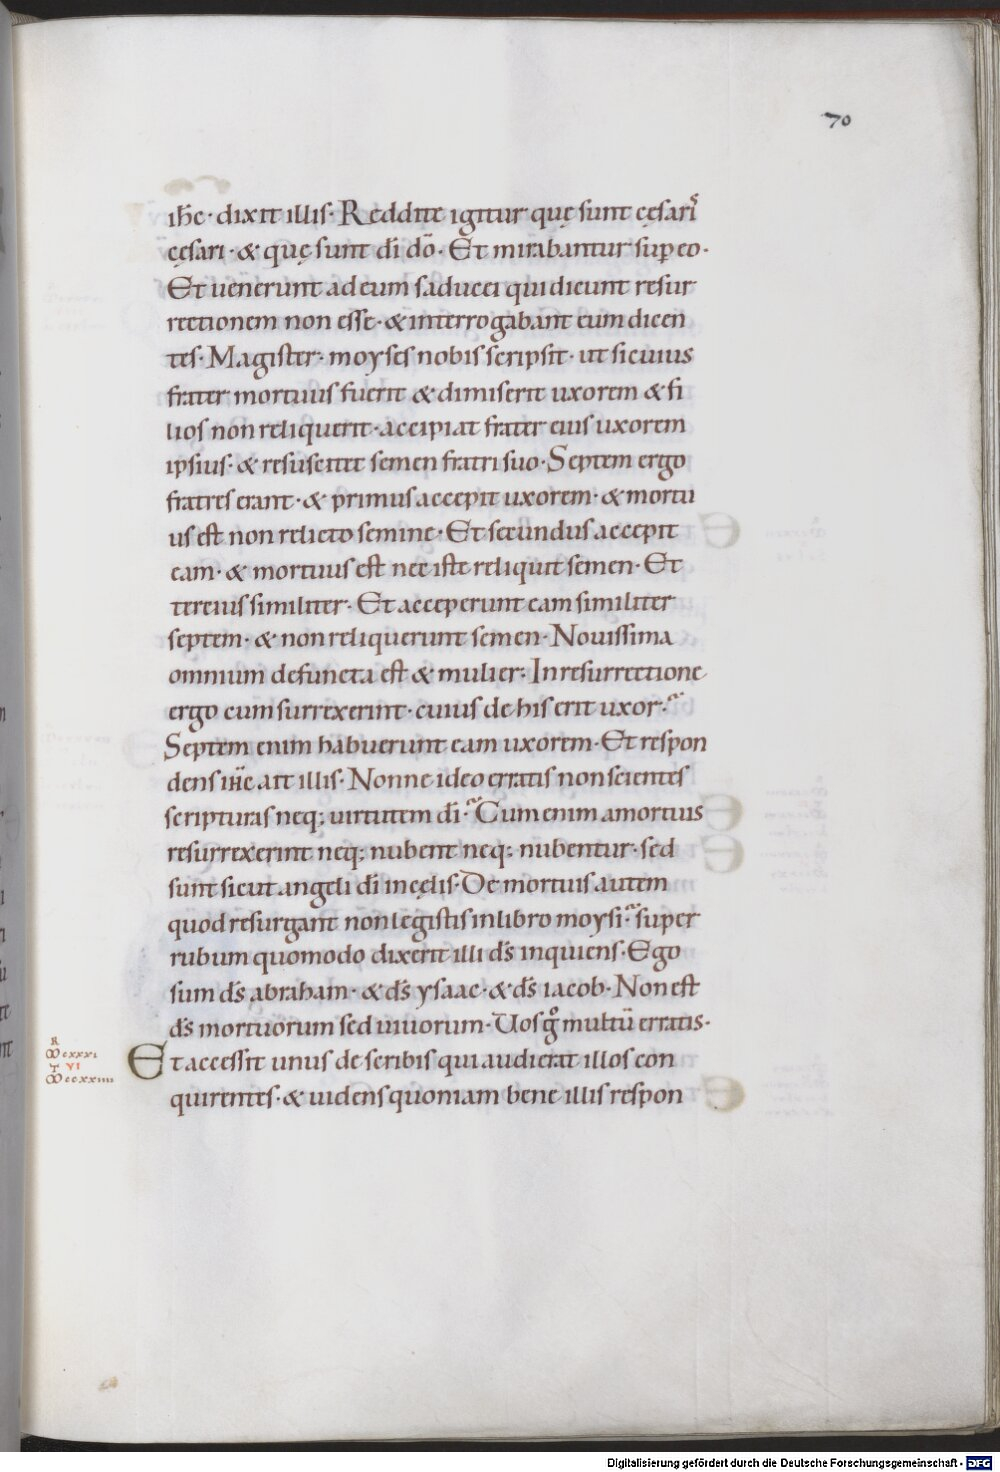 70
ih̅c · dixit illis · Reddite igitur quę sunt cęsari
cęsari · & quę sunt dī dō · Et mirabantur sup eo ·
Et uenerunt ad eum saducei qui dicunt resur
rectionem non esse · & interrogabant eum dicen
tes · Magister · moyses nobis scripsit · ut si cuius
frater mortuus fuerit & dimiserit uxorem & fi
lios non reliquerit · accipiat frater eius uxorem
ipsius · & resuscitet semen fratri suo · Septem ergo
fratres erant · & primus accepit uxorem · & mortu
us est non relicto semine · Et secundus accepit
eam · & mortuus est nec iste reliquit semen · Et
tercius similiter · Et acceperunt eam similiter
septem · & non reliquerunt semen · Nouissima
omnium defuncta est & mulier · In resurrectione
ergo cum surrexerint · cuius de his erit uxor ·
Septem enim habuerunt eam uxorem · Et respon
dens ih̅c ait illis · Nonne ideo erratis non scientes
scripturas neq; uirtutem dī · Cum enim a mortuis
resurrexerint neq; nubent neq; nubentur · sed
sunt sicut angeli dī in cęlis · De mortuis autem
quod resurgant non legistis in libro moysi · super
rubum quomodo dixerit illi ds̄ inquiens · Ego
sum ds̄ abraham · & ds̄ ysaac · & ds̄ iacob · Non est
ds̄ mortuorum sed uiuorum · Uos gͦ multū erratis ·
Et accessit unus de scribis qui audierat illos con
quirentes · & uidens quoniam bene illis respon
R
cxxxi
T VI
ccxxiiii
Digitalisierung gefördert durch die Deutsche Forschungsgemeinschaft - DFG